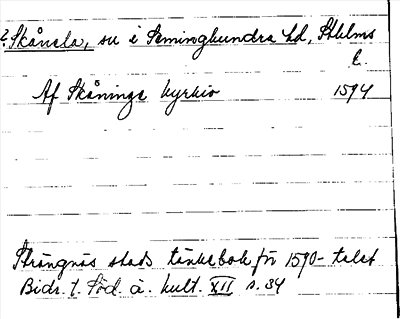 ? Skånela, sn i Seminghundra hd, Sthlms
l.
Af Skånings kyrkio 1594
Strängnäs stads tänkebok för 1590-talet
Bidr. t. Söd. ä. kult. XII s. 34